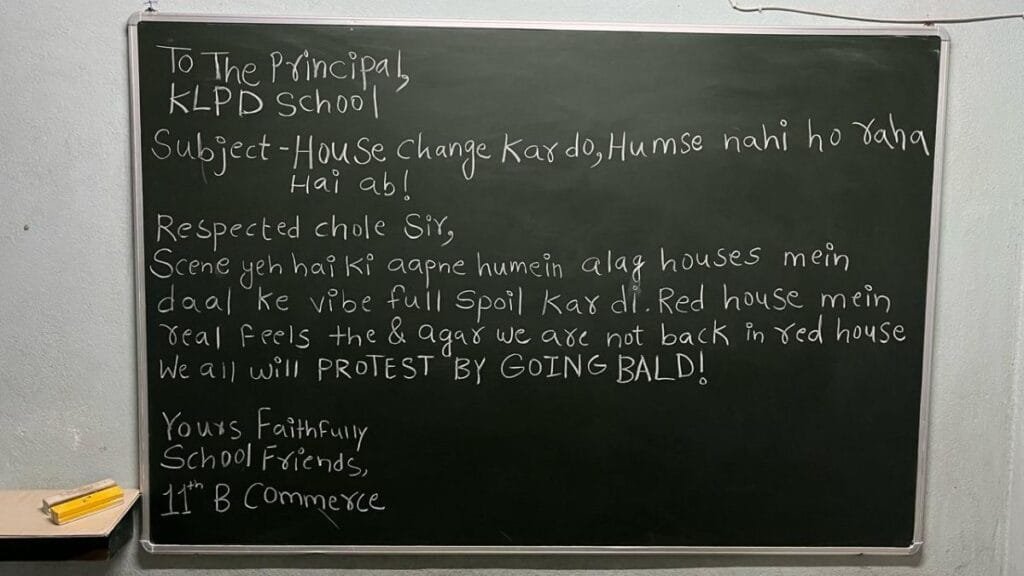 To The Principal,
KLPD School
Subject - House change Kar do, Humse nahi ho raha
Hai ab!
Respected chole Sir,
Scene yeh hai ki aapne humein alag houses mein
daal ke vibe full spoil kar di. Red house mein
real feels the & agar we are not back in red house
We all will PROTEST BY GOING BALD!
Yours Faithfully
School Friends,
11th B Commerce